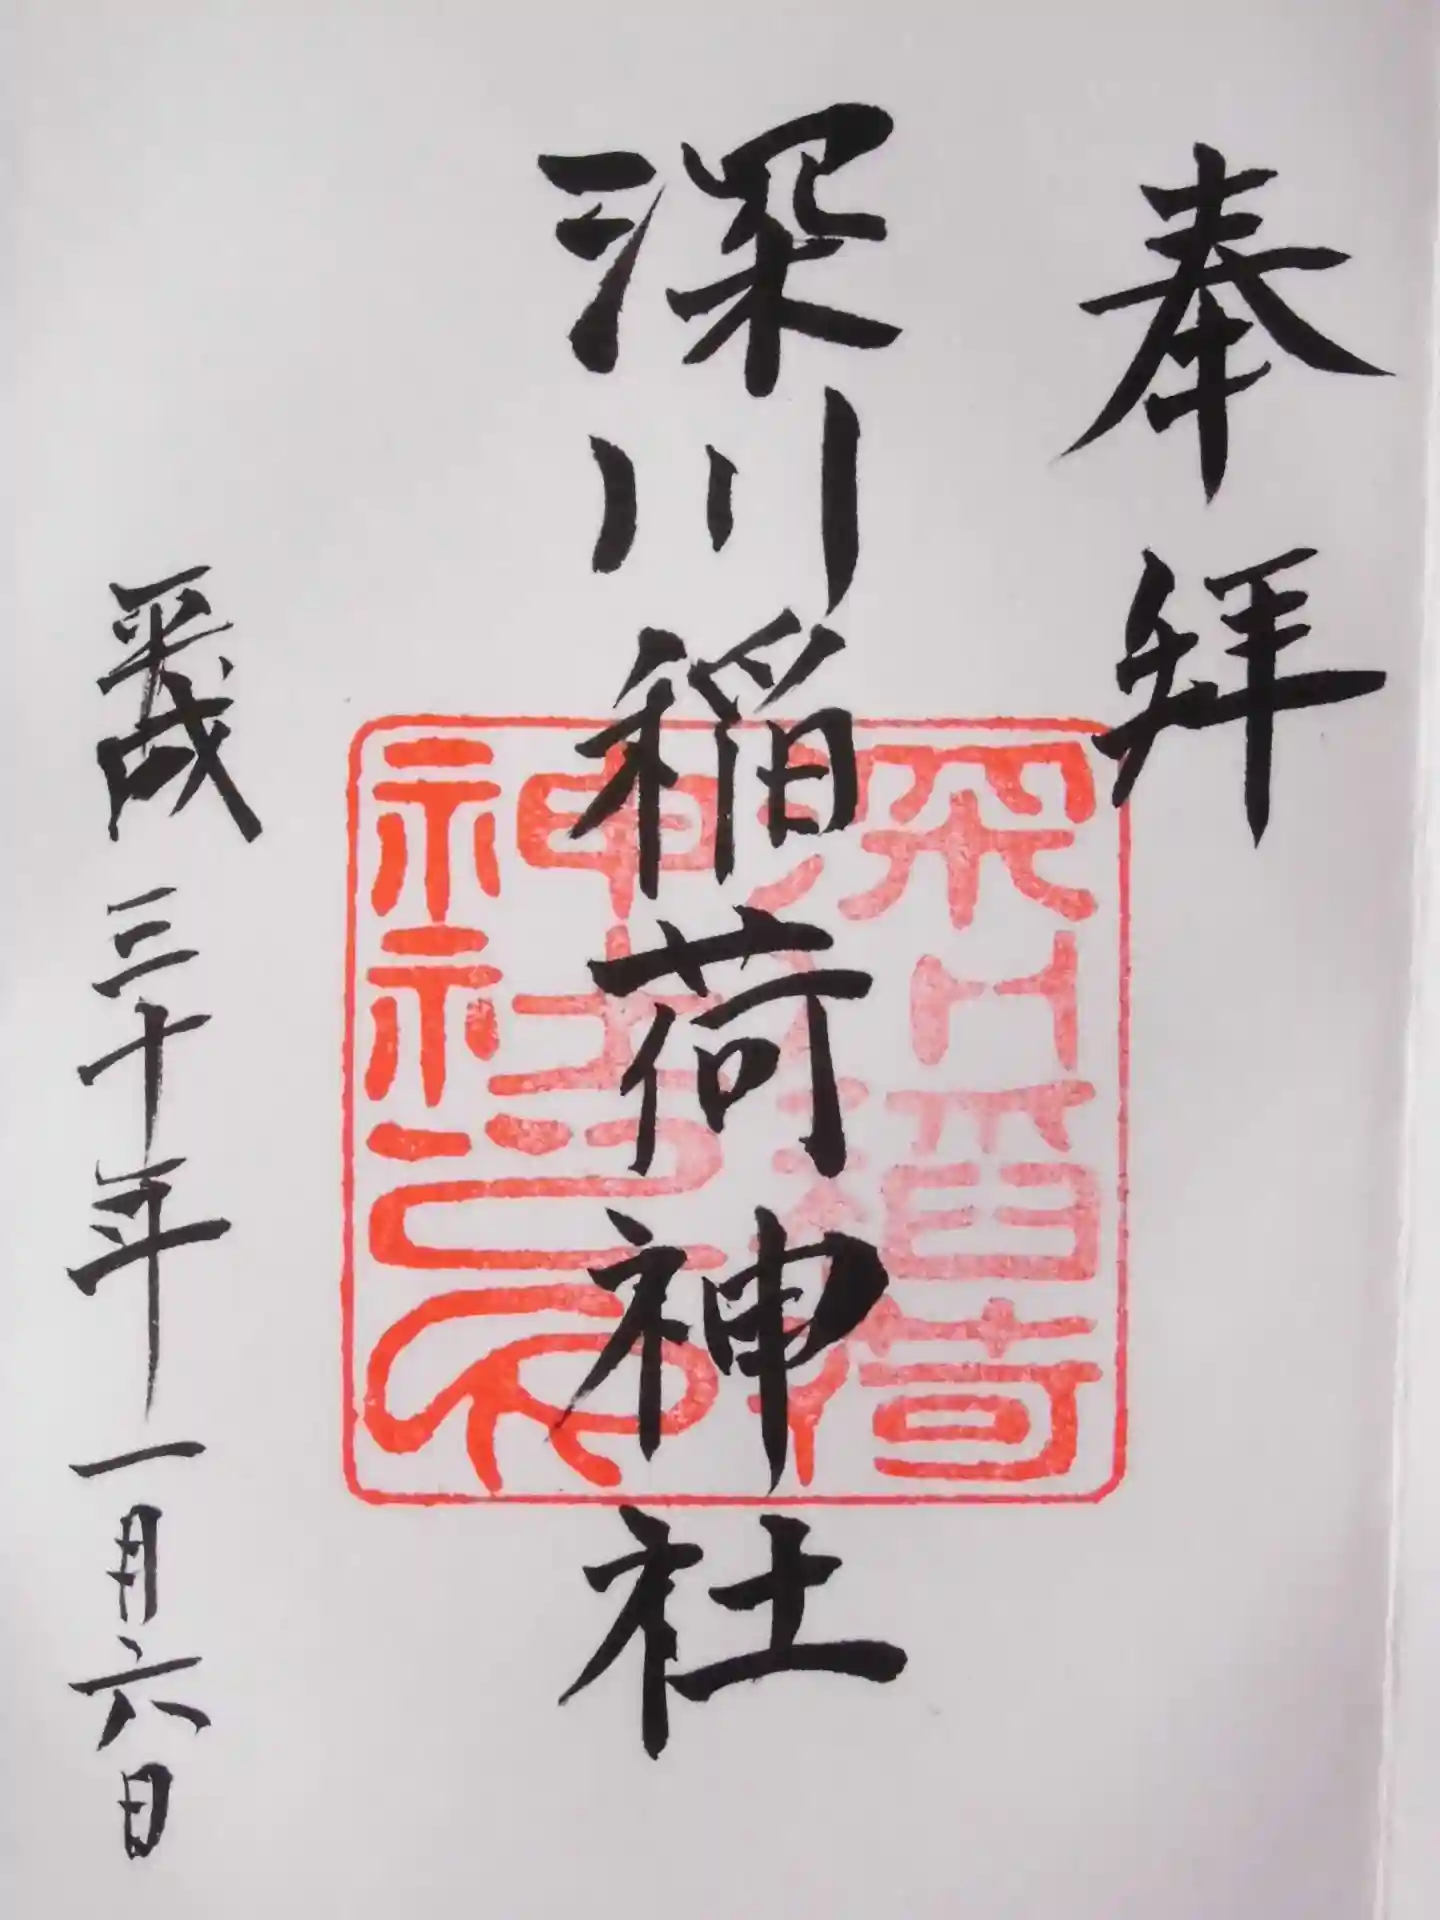 奉拝
深川稲荷神社
深川稲荷
神社
平成三十年一月六日